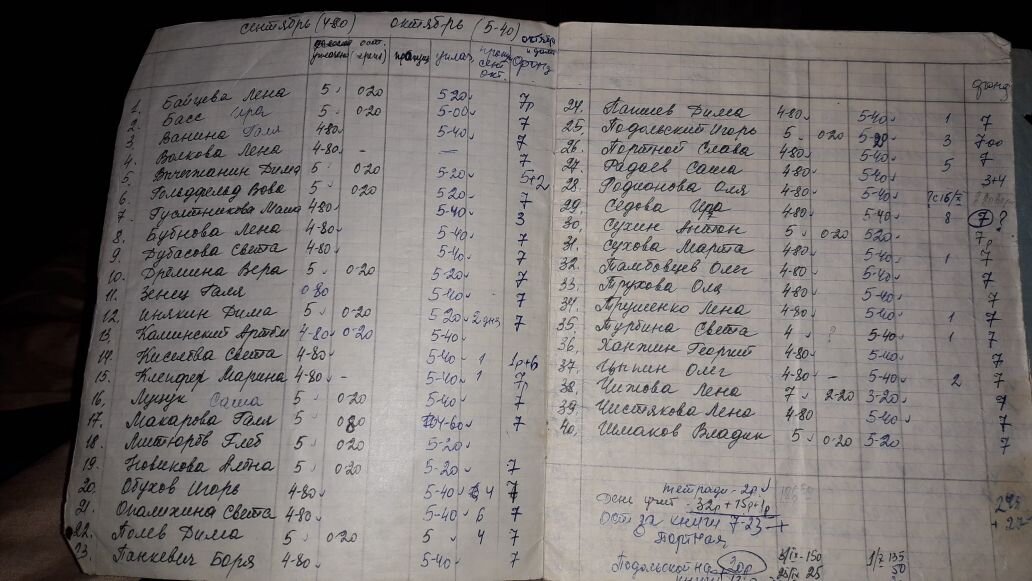 сентябрь (4-80) октябрь (5-40)
ост. октябрь
уплач. пропущ. сент. окт. фонд
1. Байцева Лена 5 0-20 5-20 7р
2. Басс Ира 5 0-20 5-00 7
3. Ванина Галя 4-80 5-40 7
4. Волкова Лена 4-80 - — 7
5. Дима 5 0-20 5-20 5+2
6. Гольдфельд Вова 5 0-20 5-20 7
7. Маша 4-80 5-40 3
8. Бубнова Лена 4-80 5-40 7
9. Дубасова Света 4-80 5-40 7
10. Дремина Вера 5 0-20 5-20 7
11. Зенец Галя 0-80 5-40 7
12. Инякин Дима 5 0-20 5-20 2 дня 7
13. Каминский Артём 4-80 0-20 5-40
14. Света 4-80 5-40 1 1р+6
15. Клепфер Марина 4-80 - 5-40 1 7р
16. Луцук Саша 5 0-20 5-40 7
17. Макарова Галя 5 7
18. Глеб 5 0-20 5-20
19. Новикова Алтна 5 0-20 5-20 7
20. Обухов Игорь 4-80 5-40 4 7
21. Опалихина Света 4-80 5-40 6 7
22. Полев Дима 5 0-20 5 4 7
23. Панкевич Боря 4-80 5-40 7
фонд
24. Папшев Дима 4-80 5-40 1 7
25. Подольский Игорь 5 0-20 3 700
26. Портной Слава 4-80 5-40 5 7
27. Радаев Саша 4-80 5-40 3+4
28. Родионова Оля 4-80 5-40
29. Седова Ира 4-80 5-40 8 7?
30. Сухин Антон 5 0-20 5-20 7р
31. Сухова Марта 4-80 5-40 1 7
32. Тамбовцев Олег 4-80 5-40 7
33. Трухова Оля 4-80 5-40 7
34. Трушенко Лена 4-80 5-40 1 7
35. Турбина Света 4 ? 5-40 1 7
36. Ханжин Георгий 4-80 5-40 7
37. Цыпин Олег 4-80 - 5-40 2 7
38. Чижова Лена 7 2-20 3-20 7
39. Чистякова Лена 4-80 5-40 7
40. Шмаков Владик 5 0-20 5-20 7
тетради - 2р
32р + 15р + 1р
Ост за книги 7-23
Портная
Подольской на 30р 150 135
25 50